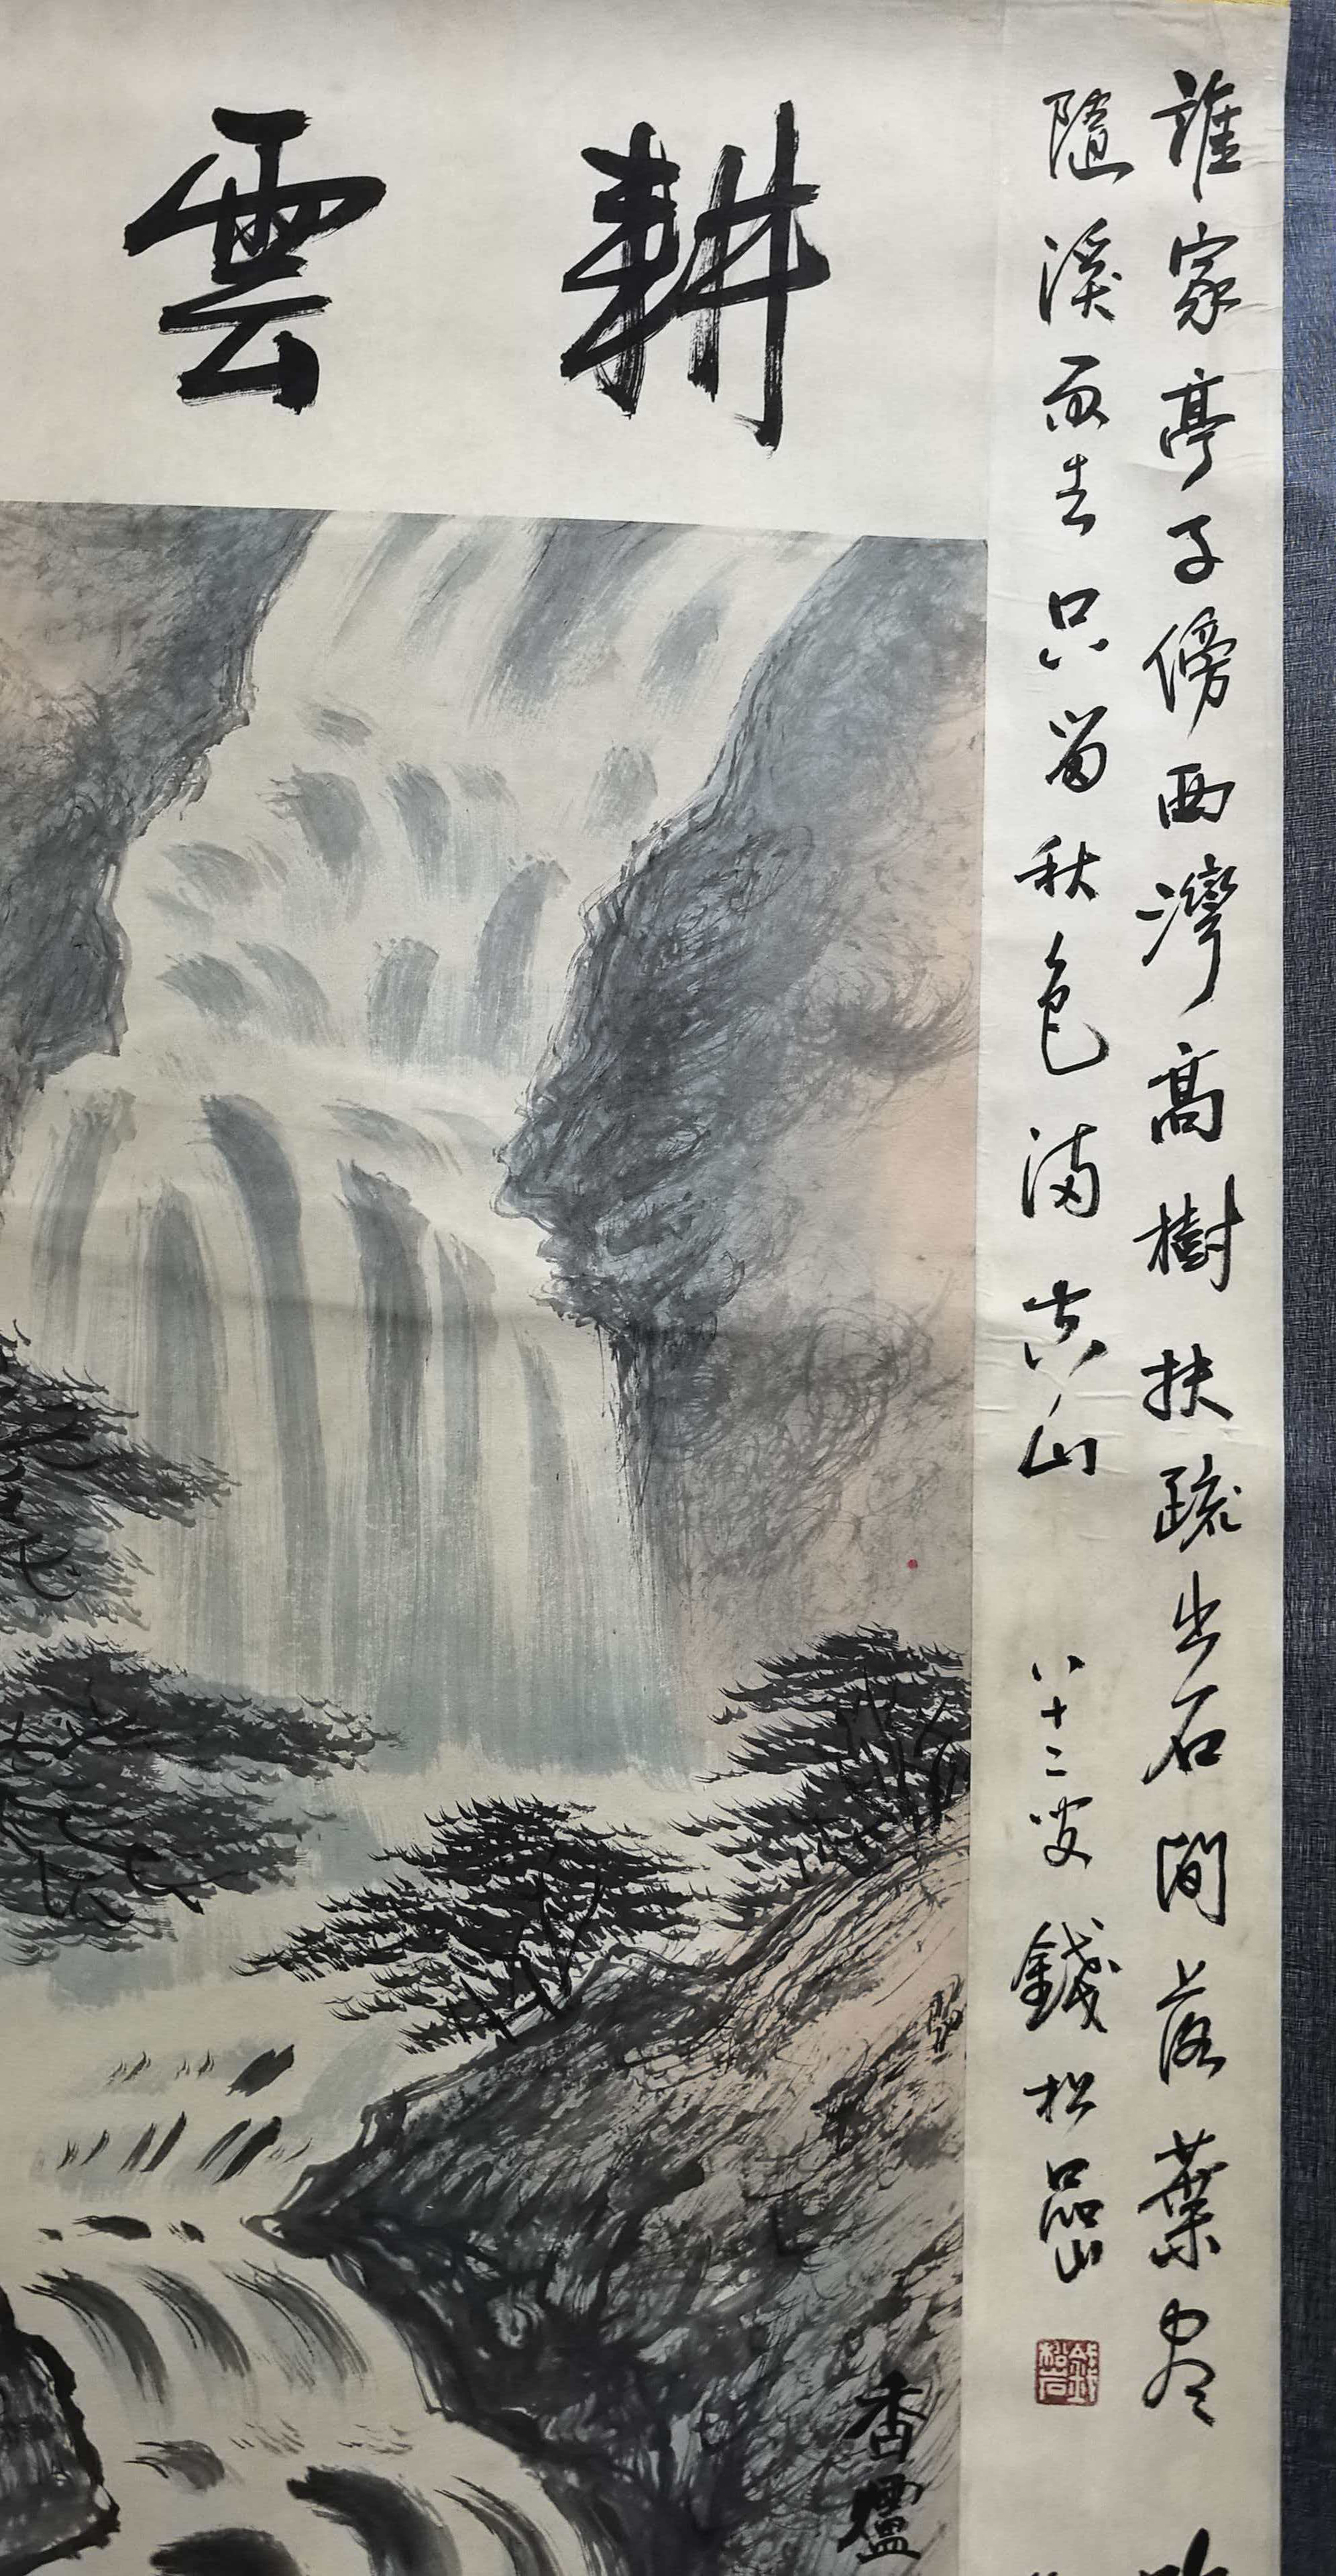 耕雲
誰家亭子傍西灣高樹扶疏出石間落葉尽
隨溪雨去只留秋色滿空山 八十二叟 錢松喦
香爐